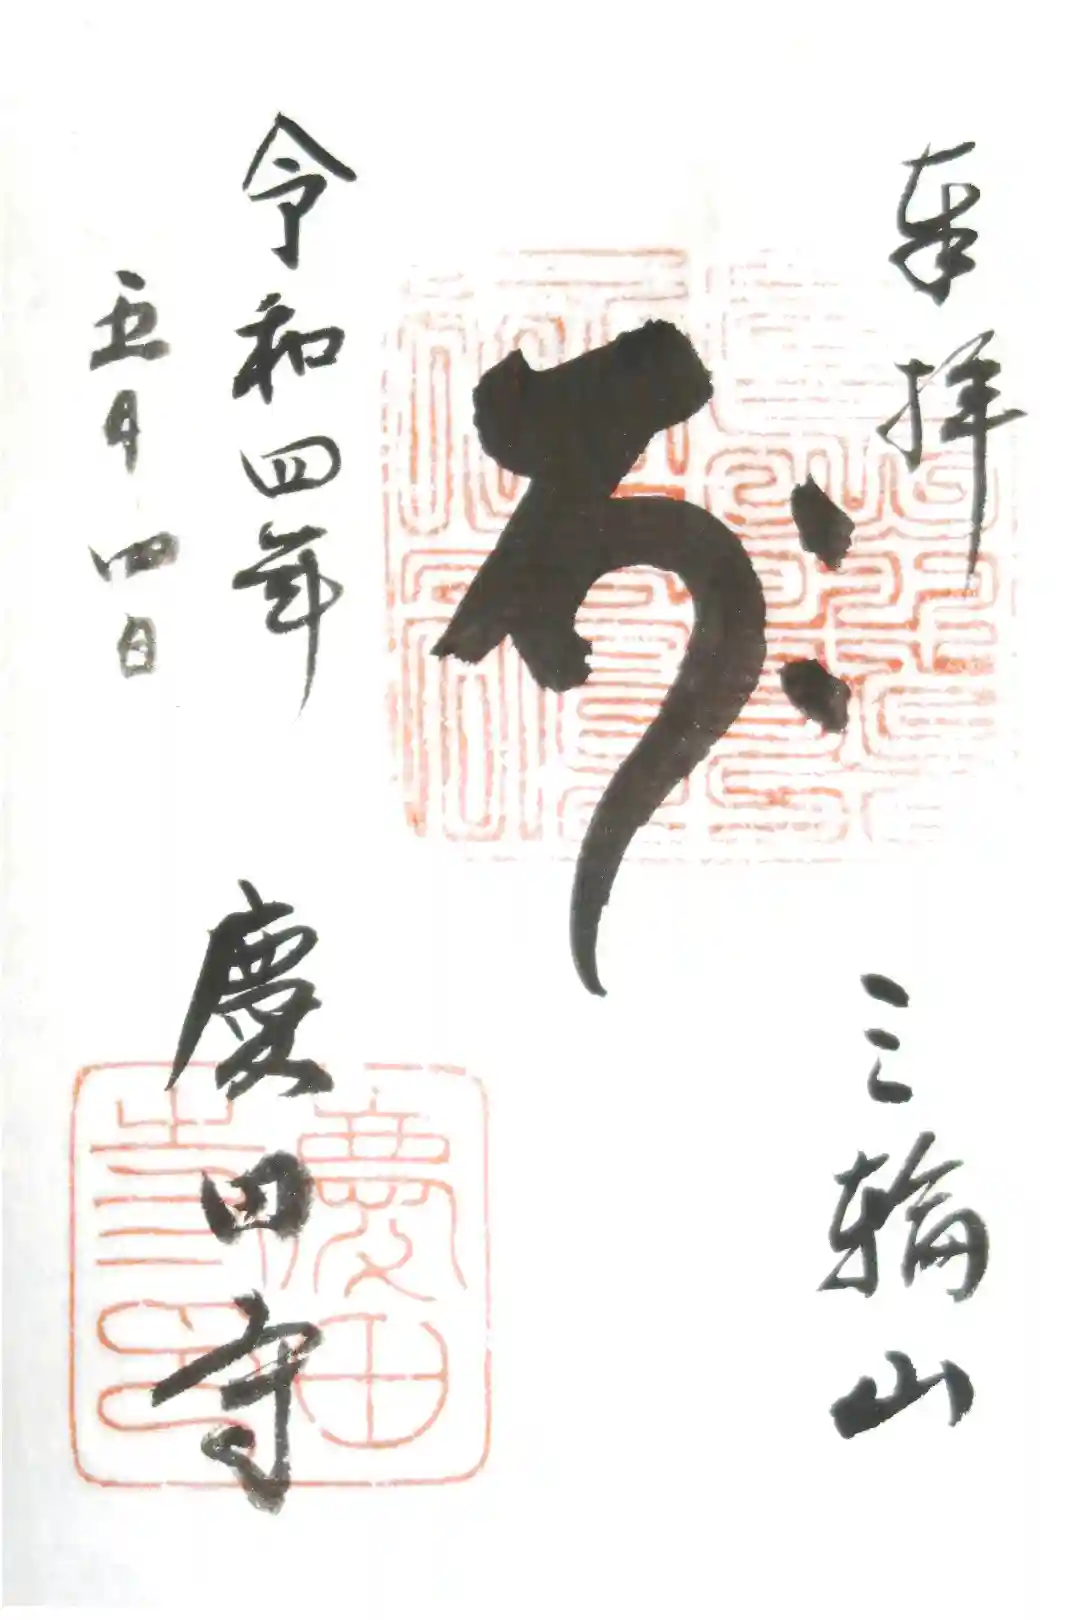 奉拝
三輪山
令和四年
五月四日
慶田寺
慶田
寺印